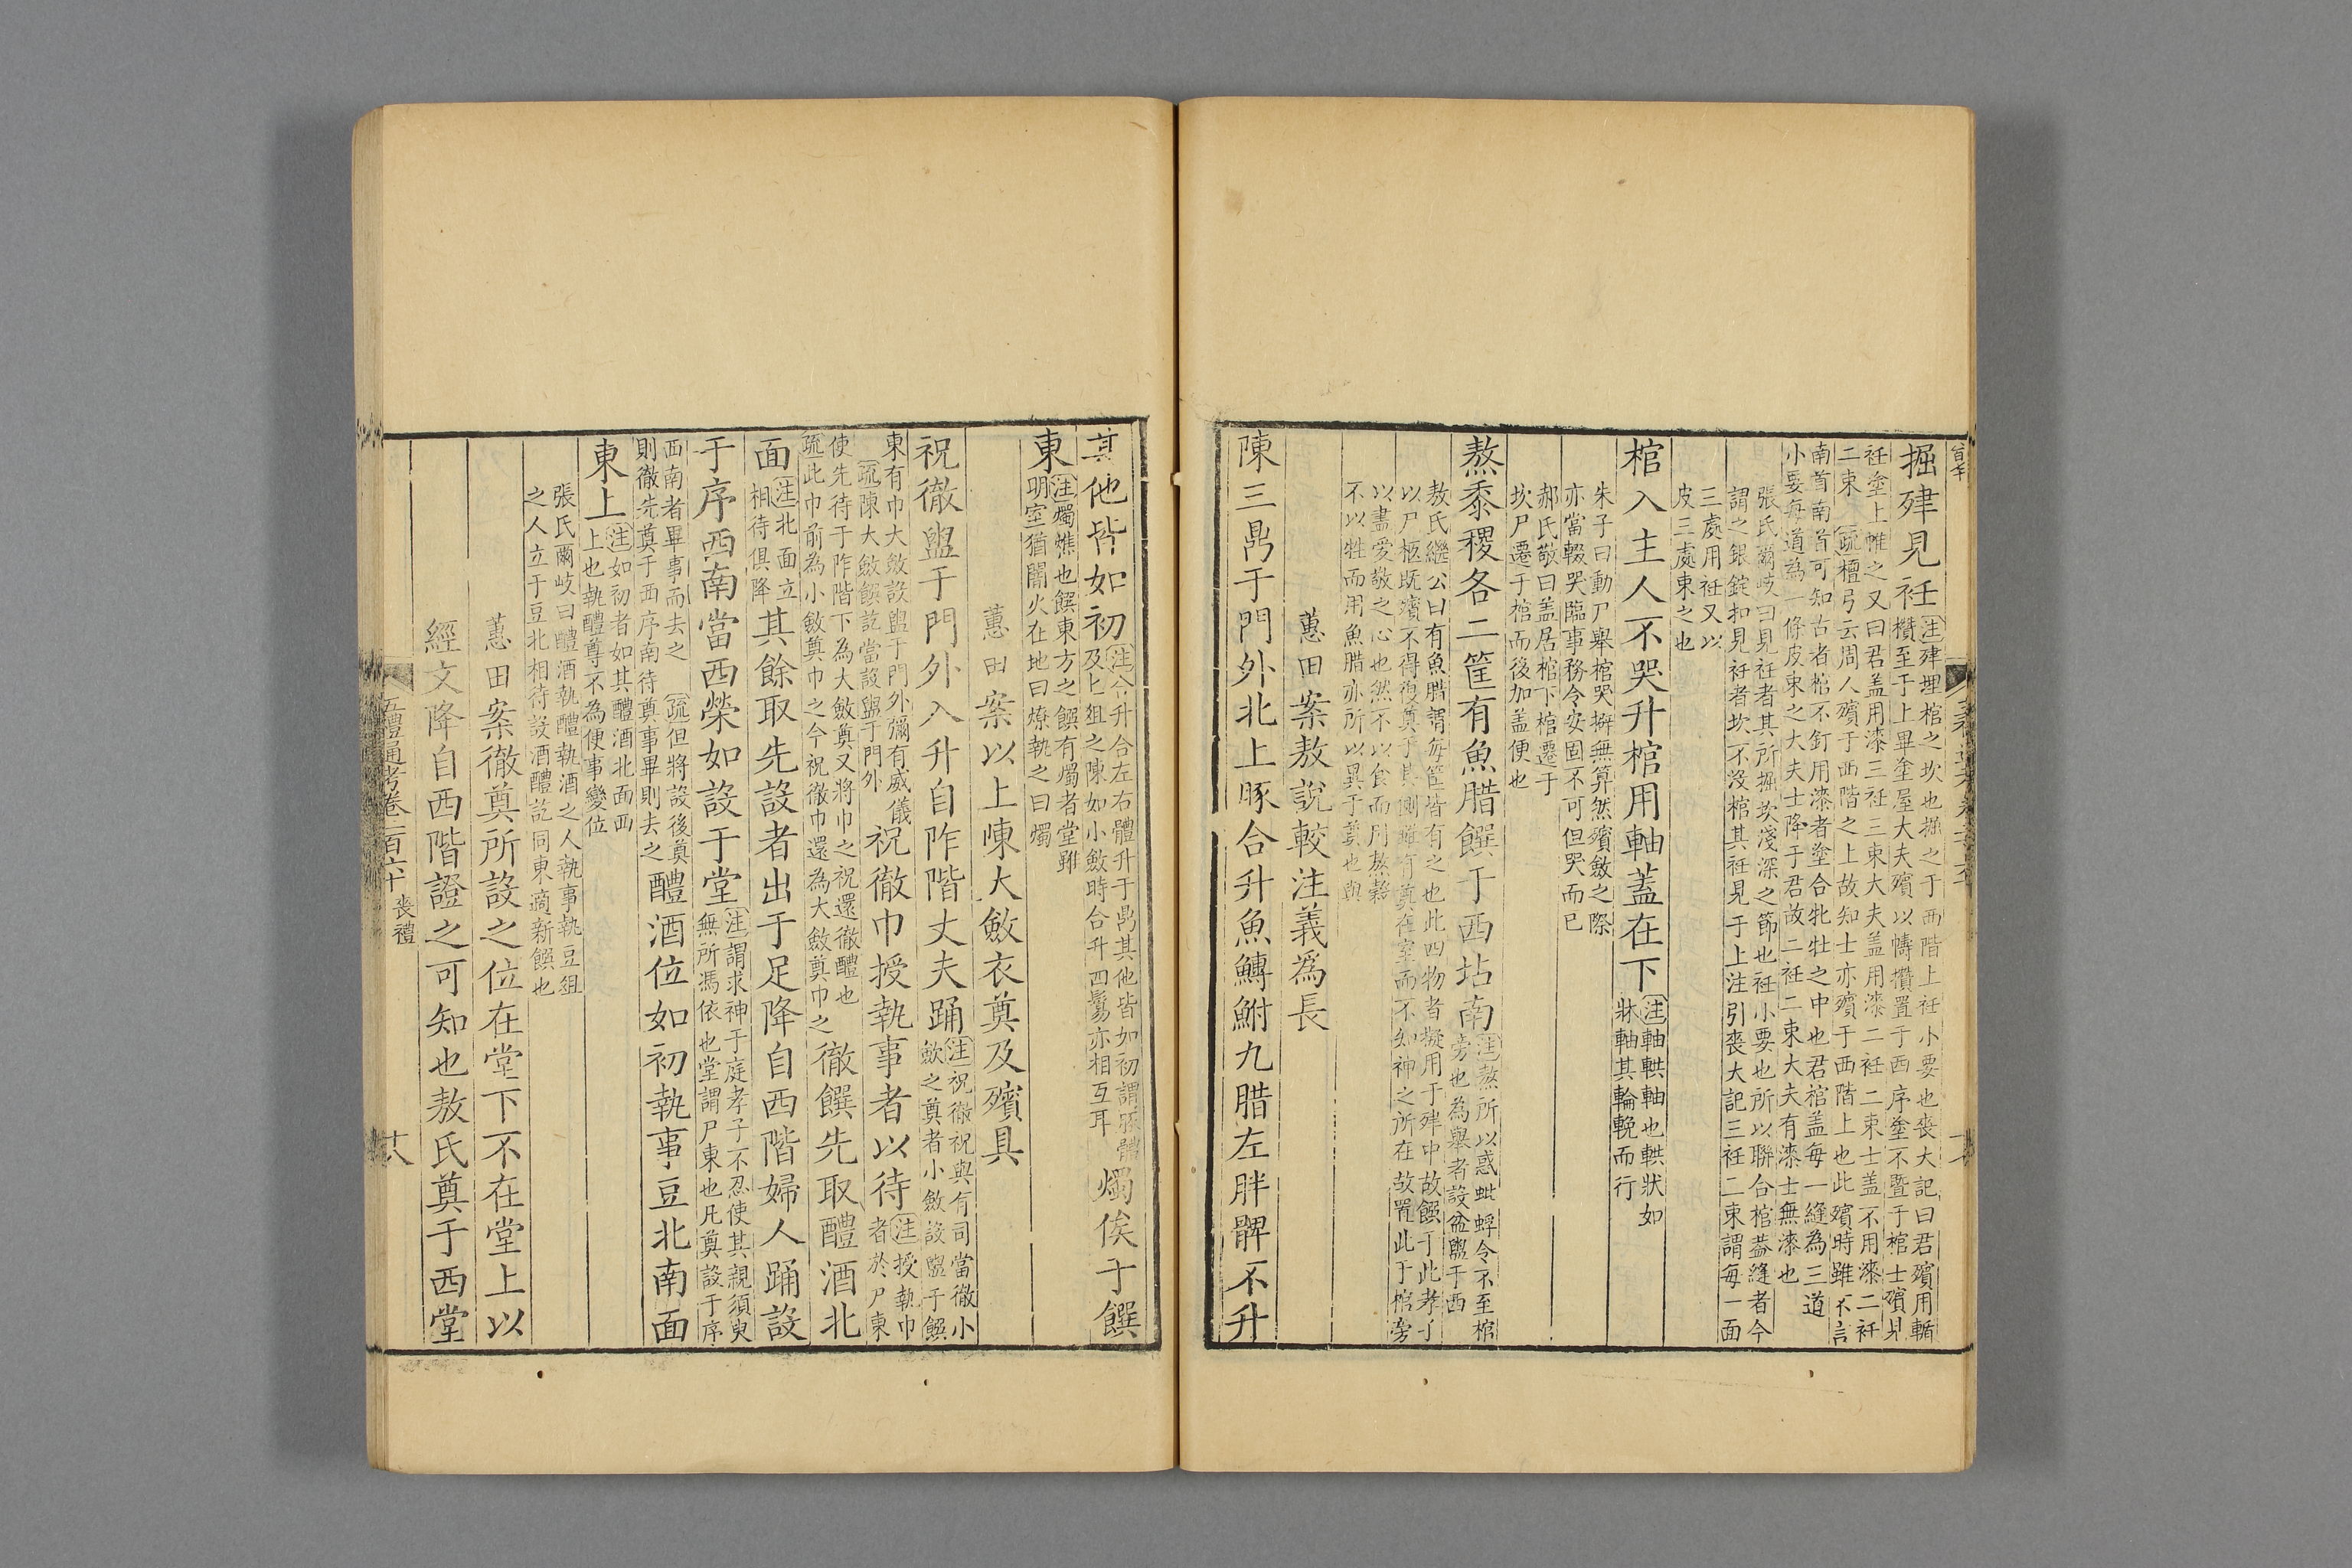 掘肂見衽
注肂埋棺之坎也掘之于西階上衽小要也喪大記曰君殯用輴
欑至于上畢塗屋大夫殯以幬攢置于西序塗不暨于棺士殯見
衽塗上帷之又曰君盖用漆三衽三束大夫盖用漆二衽二束士盖不用漆二衽
二束 疏檀弓云周人殯于西階之上故知士亦殯于西階上也此殯時雖不言
南首南首可知古者棺不釘用漆者塗合牝牡之中也君棺盖每一縫為三道
小要每道為一條皮束之大夫士降于君故二衽二束大夫有漆士無漆也
張氏爾岐曰見衽者其所掘坎淺深之節也衽小要也所以聯合棺盖縫者今
謂之銀錠扣見衽者坎不沒棺其衽見于上注引喪大記三衽二束謂每一面
三處用衽又以
皮三處束之也
棺入主人不哭升棺用軸蓋在下
注軸輁軸也輁狀如
牀軸其輪輓而行
朱子曰動尸舉棺哭擗無算然殯斂之際
亦當輟哭臨事務令安固不可但哭而已
郝氏敬曰盖居棺下棺遷于
坎尸遷于棺而後加盖便也
熬黍稷各二筐有魚腊饌于西坫南
注熬所以惑蚍蜉令不至棺
旁也為舉者設盆盥于西
敖氏繼公曰有魚腊謂每筐皆有之也此四物者擬用于肂中故饌于此孝子
以尸柩既殯不得復奠于其側雖有奠在室而不知神之所在故置此于棺旁
以盡愛敬之心也然不以食而用熬穀
不以牲而用魚腊亦所以異于奠也與
蕙田案敖說較注義為長
陳三鼎于門外北上豚合升魚鱄鮒九腊左胖髀不升
其他皆如初
注合升合左右體升于鼎其他皆如初謂豚體
及匕俎之陳如小斂時合升四鬄亦相互耳
燭俟于饌
東
注燭燋也饌東方之饌有燭者堂雖
明室猶闇火在地曰燎執之曰燭
蕙田案以上陳大斂衣奠及殯具
祝徹盥于門外入升自阼階丈夫踊
注祝徹祝與有司當徹小
斂之奠者小斂設盥于饌
東有巾大斂設盥于門外彌有威儀
疏陳大斂饌訖當設盥于門外
祝徹巾授執事者以待
注授執巾
者於尸東
使先待于阼階下為大斂奠又將巾之祝還徹醴也
疏此巾前為小斂奠巾之今祝徹巾還為大斂奠巾之
徹饌先取醴酒北
面
注北面立
相待俱降
其餘取先設者出于足降自西階婦人踊設
于序西南當西榮如設于堂
注謂求神于庭孝子不忍使其親須臾
無所馮依也堂謂尸東也凡奠設于序
西南者畢事而去之 疏但將設後奠
則徹先奠于西序南待奠事畢則去之
醴酒位如初執事豆北南面
東上
注如初者如其醴酒北面西
上也執醴尊不為便事變位
張氏爾岐曰醴酒執醴執酒之人執事執豆俎
之人立于豆北相待設酒醴訖同東適新饌也
蕙田案徹奠所設之位在堂下不在堂上以
經文降自西階證之可知也敖氏奠于西堂
五禮通考卷二百六十 喪禮
十八